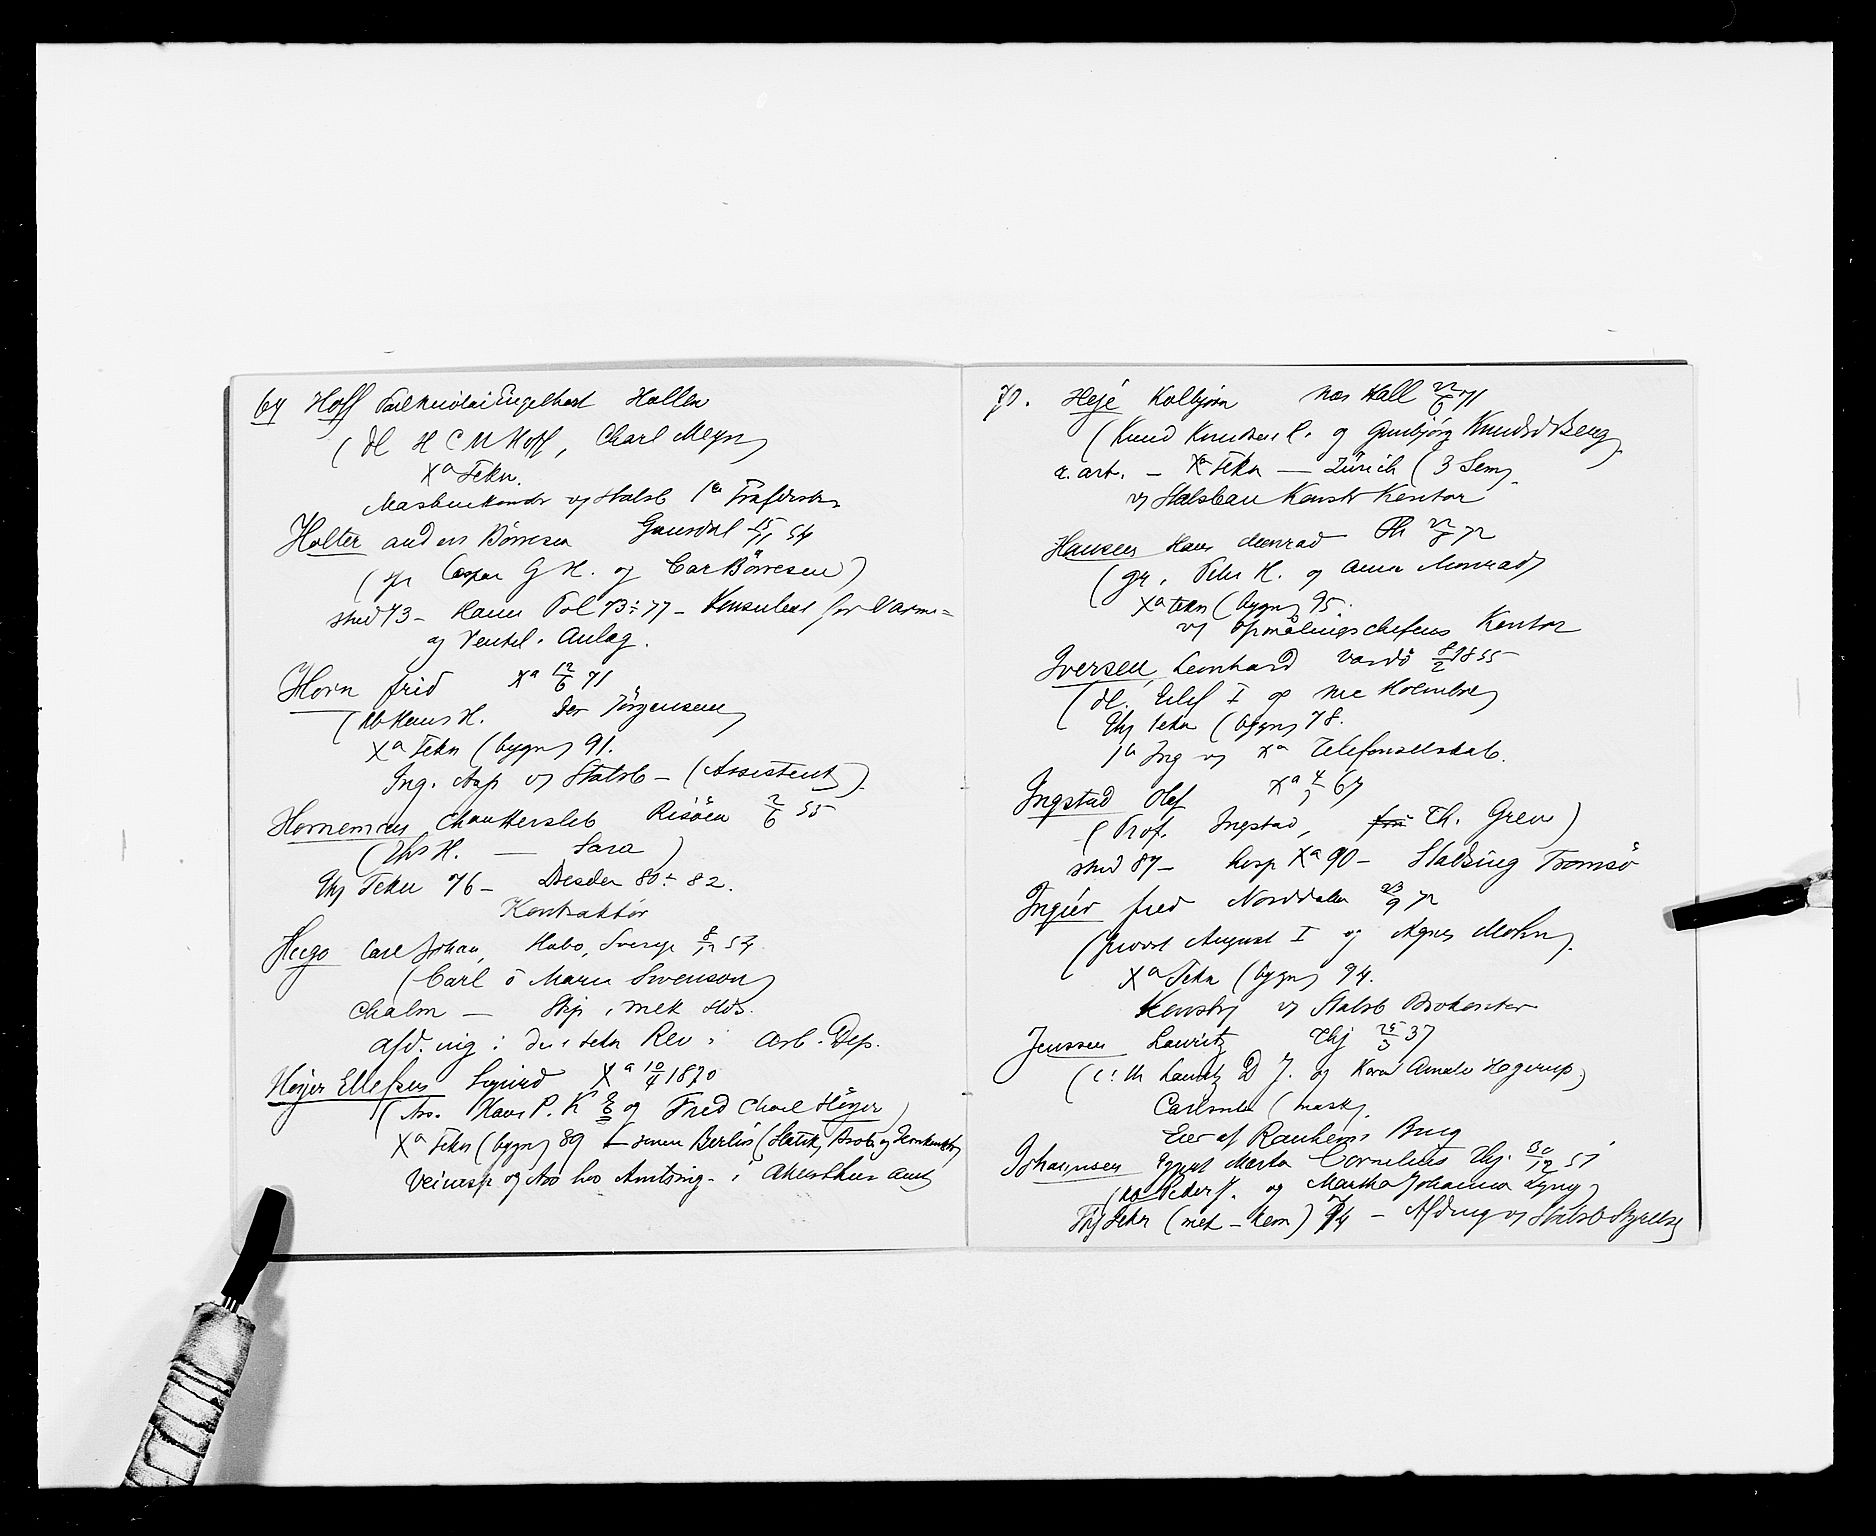 Hoff Engelhart Hollen
(dl H C M Hoff, Charl Meyn)
Xª Tekn.
v/ Statsb 1ª
Holter Anders Börresen 15/11 54
(gr Casper G H. og Car Börresen)
stud 73 – Hann Pol 73÷77 – Konsulent for Varme=
og Ventil. Anlæg.
Horn Fred Xª 12/6 71
(Ab Hans H. Jörgensen)
Xª Tekn (bygn) 91.
Ing. Asp v/ Statsb – (Assistent)
Hornemann Chr Risöen 2/6 55
(Ths H. — Sara )
Thj Tekn 76 – Dresden 80÷82.
Kontraktör
Hugo Carl Johan, Habo, Sverige 8/12 54
(Carl o Maria Swenson)
Chalm – Stip i mek
afd. ing i den tekn Rev i Arb. Dep.
Höyer Ellefsen Sigurd Xª 10/4 1870
( Hans P. K E og Fred Charl Höyer)
Xª Tekn (bygn) 89 senere Berlin (Statik,
Veivesp og Ass hos Amtsing. i Akershus amt
70. Heje Kolbjörn Nes Hall 22/6 71
(Knud Knudsen og Gunbjörg Knudsd Berg)
a. art. – Xª Tekn – Zürich (3 Sem)
v/ Statsban Konstr Kontor
Hansen Hans Monrad 72
(gr. Peter H. og Anna Monrad)
Xª tekn (bygn) 95.
v/ Opmålingschefens Kontor
Iversen, Leonhard Vardö 8/2 1855
(dl. Eilef I og Holmboe)
Thj tekn (bygn) 78.
1ª Ing v/ Xª Telefonselskab.
Ingstad Olaf Xª 67
(Prof. Ingstad, Th. Greve)
stud 87 – hosp Xª 90 – Stadsing Tromsö
Ingier Fred Norddalen 23/9 72
(provst August I og Agnes Mohn)
Xª Tekn (bygn) 94.
Konstr v/ Statsb Brokontor
Jenssen Lauritz Thj 25/3 37
( Lauritz D J. og Karen Amalie Hagerup)
Carlsruhe (mask)
Eier af Ranheims Brug
Johannsen Cornelius Thj. 30/12 51
( Peder J. og Martha Johanna Lyng)
Thj tekn (mek – kem) 74 – Afd ing v/ Statsb Styrelse